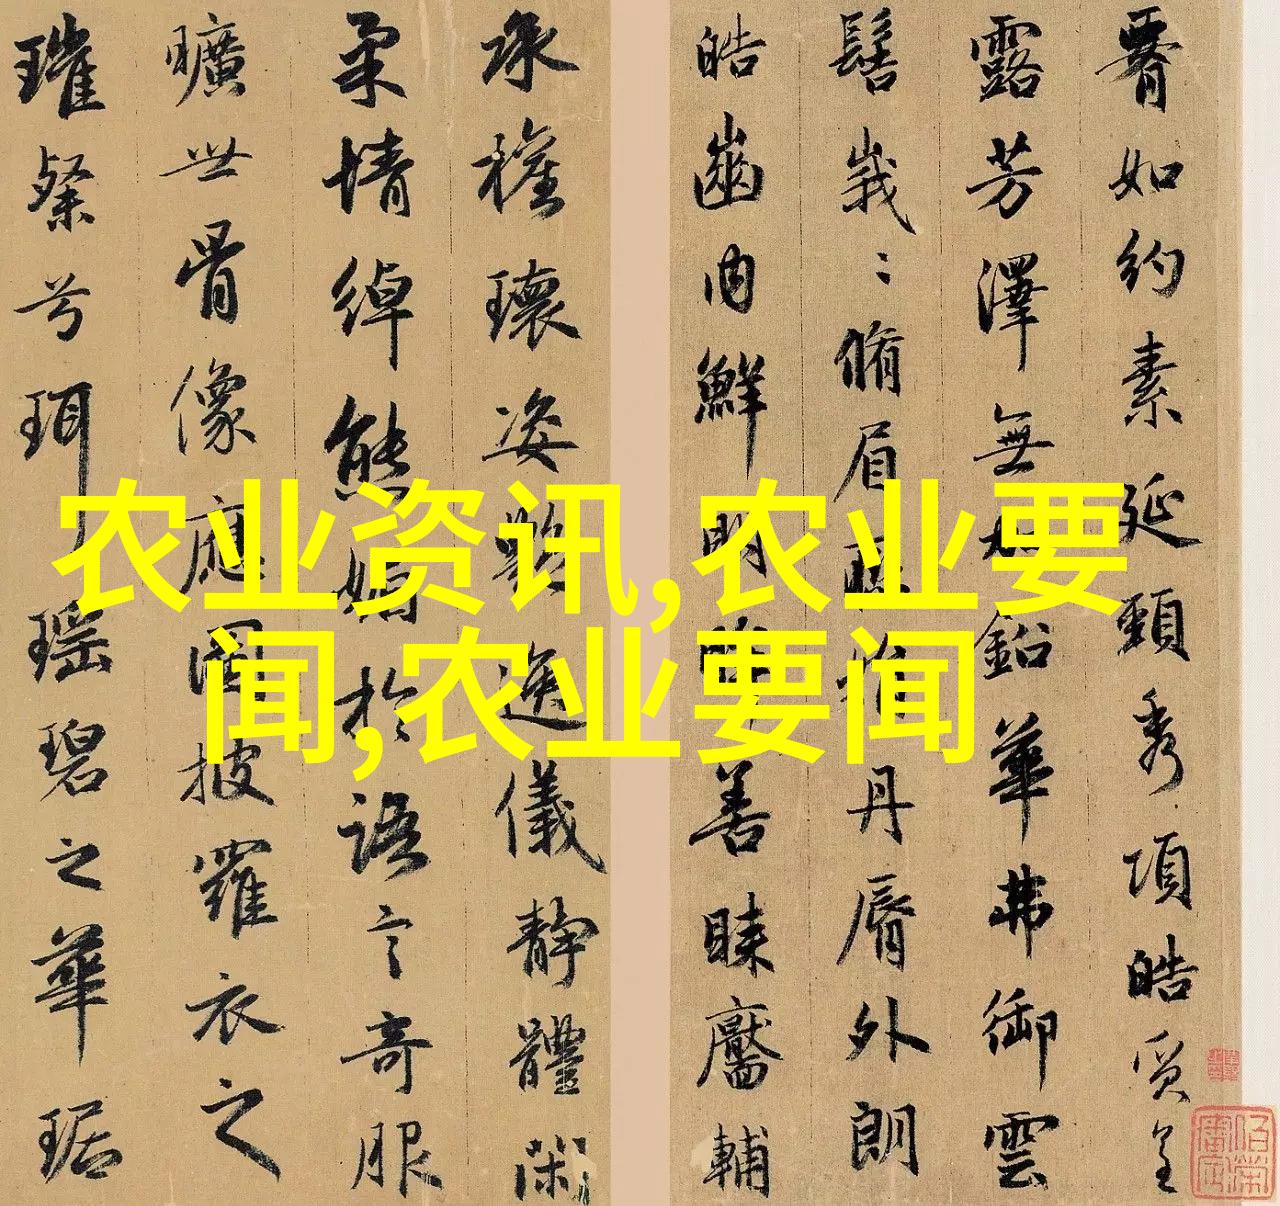 腰如約素延頸秀項皓質呈
露芳澤無加鉛華弗御雲
髻峩〻脩眉聯娟丹脣外朗
皓齒内鮮明眸善睞靨輔
承權瓌姿艷逸儀靜體閑
柔情綽態媚於語言奇服
曠世骨像應圖披羅衣之
璀粲兮珥瑶碧之華琚
农业资讯,农业要
闻,农业要闻